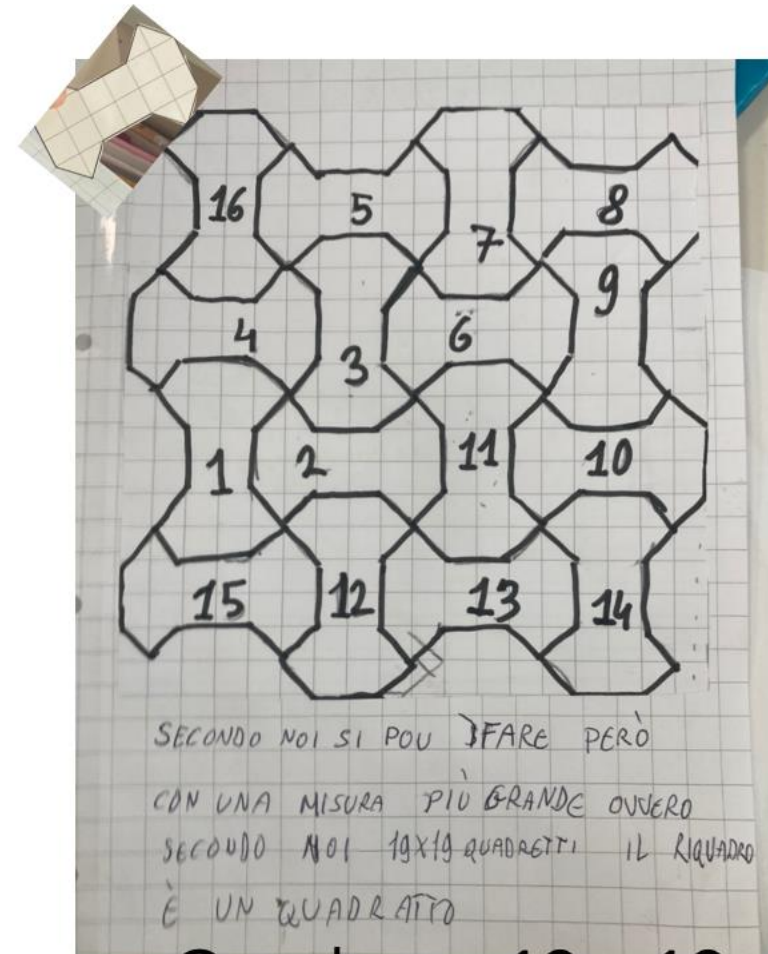 16 5 7 8
4 3 6 9
1 2 11 10
15 12 13 14
SECONDO NOI SI POU FARE PERÒ
CON UNA MISURA PIÙ GRANDE OVVERO
SECONDO NOI 19X19 QUADRETTI IL RIQUADRO
È UN QUADRATTO